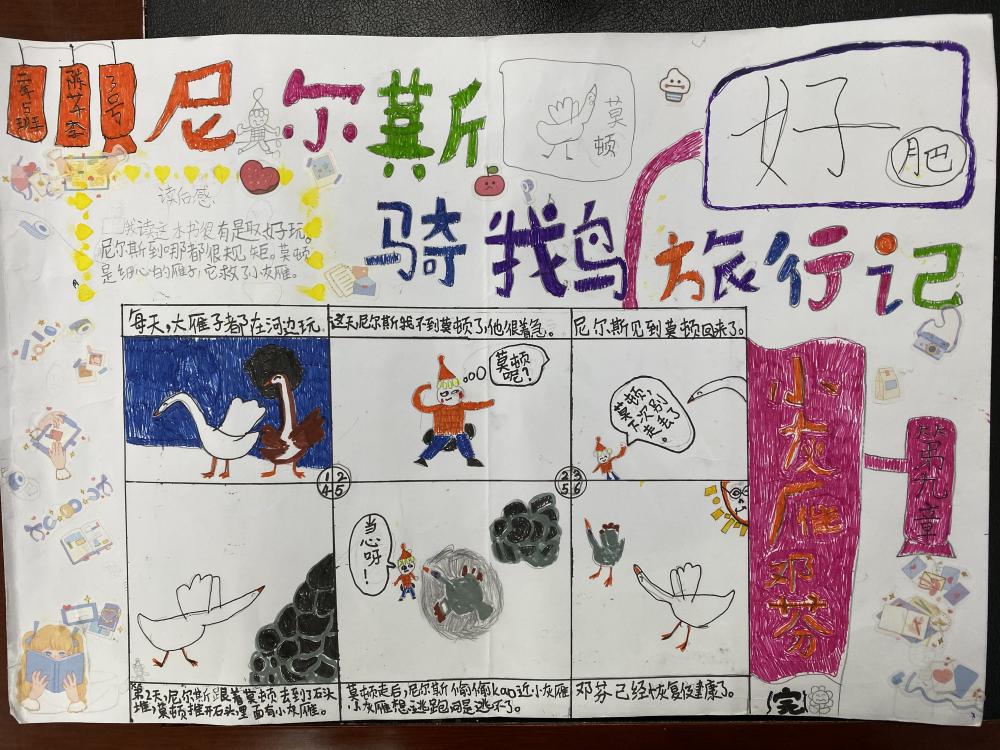 二年5班
30号
尼尔斯
莫顿
好
肥
骑我鸟旅行记
读后感
我读这本书很有是取好玩。
尼尔斯到哪都很规矩。莫顿
是细心的雁子,它救了小灰雁。
每天,大雁子都在河边玩
这天尼尔斯找不到莫顿了,他很着急。
尼尔斯见到莫顿回来了。
莫顿呢?
莫顿,
下次别
走去了。
1 2
4 5
2 3
5 6
当心呀!
第2天,尼尔斯跟着莫顿去到了石头
堆,莫顿推开石头里面有小灰雁。
莫顿走后,尼尔斯偷偷kao近小灰雁
小灰雁想逃跑可是逃不了。
邓芬已经恢复健康了。
小灰雁邓芬
第九章
(完)